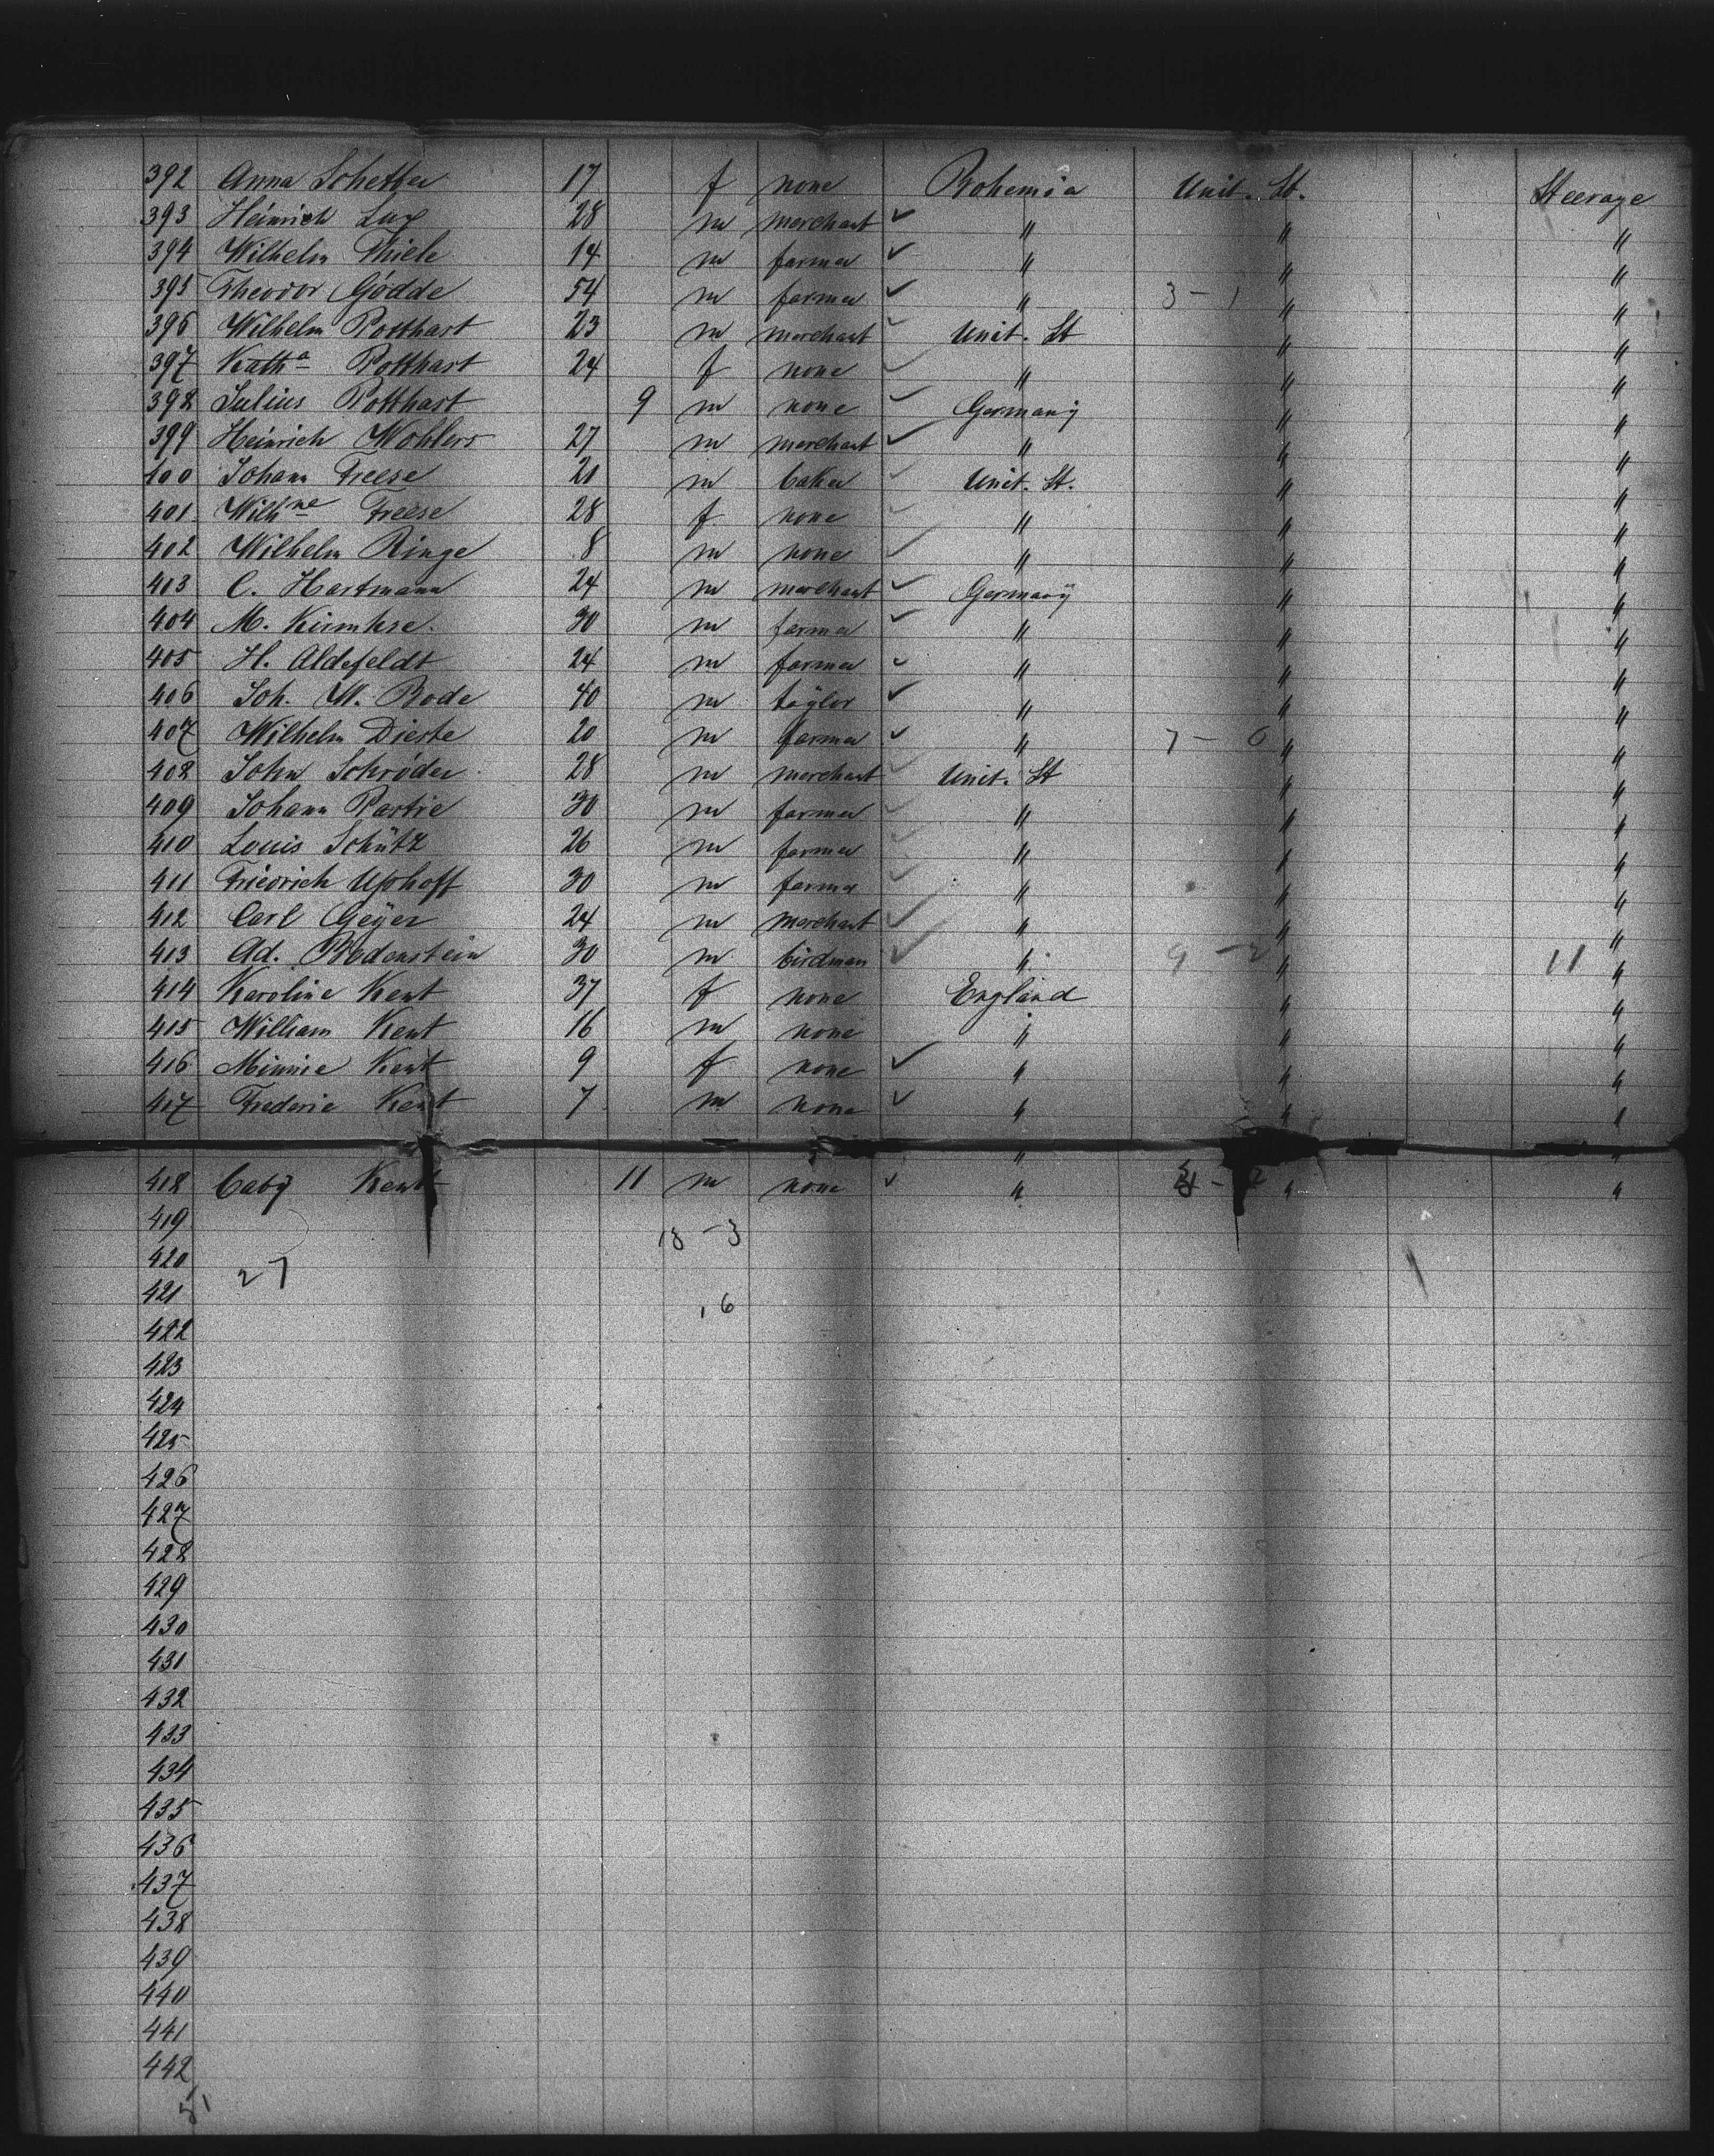 392 Anna Schetter 17 f none Bohemia Unit. St. Steerage
393 Heinrich Lux 28 m merchant " " "
394 Wilhelm Thiele 14 m farmer " " "
395 Theodor Gödde 54 m farmer " 3 - 1 " "
396 Wilhelm Potthast 23 m merchant Unit. St " "
397 Katha Potthast 24 f none " " "
398 Julius Potthast 9 m none Germany " "
399 Heinrich Wohlers 27 m merchant " " "
400 Johann Freese 20 m baker Unit. St. " "
401 Wilhne Freese 28 f none " " "
402 Wilhelm Ringe 8 m none " " "
403 C. Hartmann 24 m merchant Germany " "
404 M. 30 m farmer " " "
405 H. Aldefeldt 24 m farmer " " "
406 Joh. W. Bode 40 m taylor " " "
407 Wilhelm Dierke 20 m farmer " 7 - 0 " "
408 John Schröder 28 m merchant Unit. St " "
409 Johann 30 m farmer " " "
410 Louis Schütz 26 m farmer " " "
411 Friedrich Uphoff 30 m farmer " " "
412 Carl Geyer 24 m merchant " " "
413 Ad. Bodenstein 30 m birdman " 9 - 2 " 11 "
414 Karoline Kent 37 f none England " "
415 William Kent 16 m none " " "
416 Minnie Kent 9 f none " " "
417 Frederic Kent 7 m none " " "
418 baby Kent 11 m none " " "
419 18 - 3
420 27
421 16
422
423
424
425
426
427
428
429
430
431
432
433
434
435
436
437
438
439
440
441
442
51